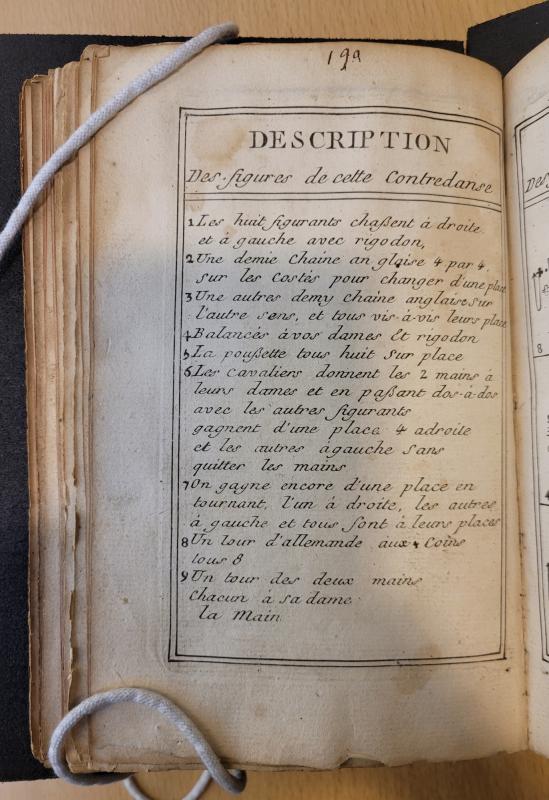 199
DESCRIPTION
Des figures de cette Contredanse
1 Les huit figurants chaßent á droite
et á gauche avec rigodon,
2 Une demie Chaine anglaise 4 par 4.
sur les Costés pour changer d'une place
3 Une autres demy chaine anglaise sur
l'autre sens, et tous vis-á-vis leurs place
4 Balancés á vos dames Et rigodon
5 La poußette tous huit sur place
6 Les Cavaliers donnent les 2 mains á
leurs dames et en paßant dos-á-dos
avec les autres figurants
gagnent d'une place 4 adroite
et les autres ágauche sans
quitter les mains
7 On gagne encore d'une place en
tournant, l'un á droite, les autres
á gauche et tous sont á leurs places
8 Un tour d'allemande aux 4 Coins
tous 8
9 Un tour des deux mains
Chacun á sa dame
la Main
Des
8